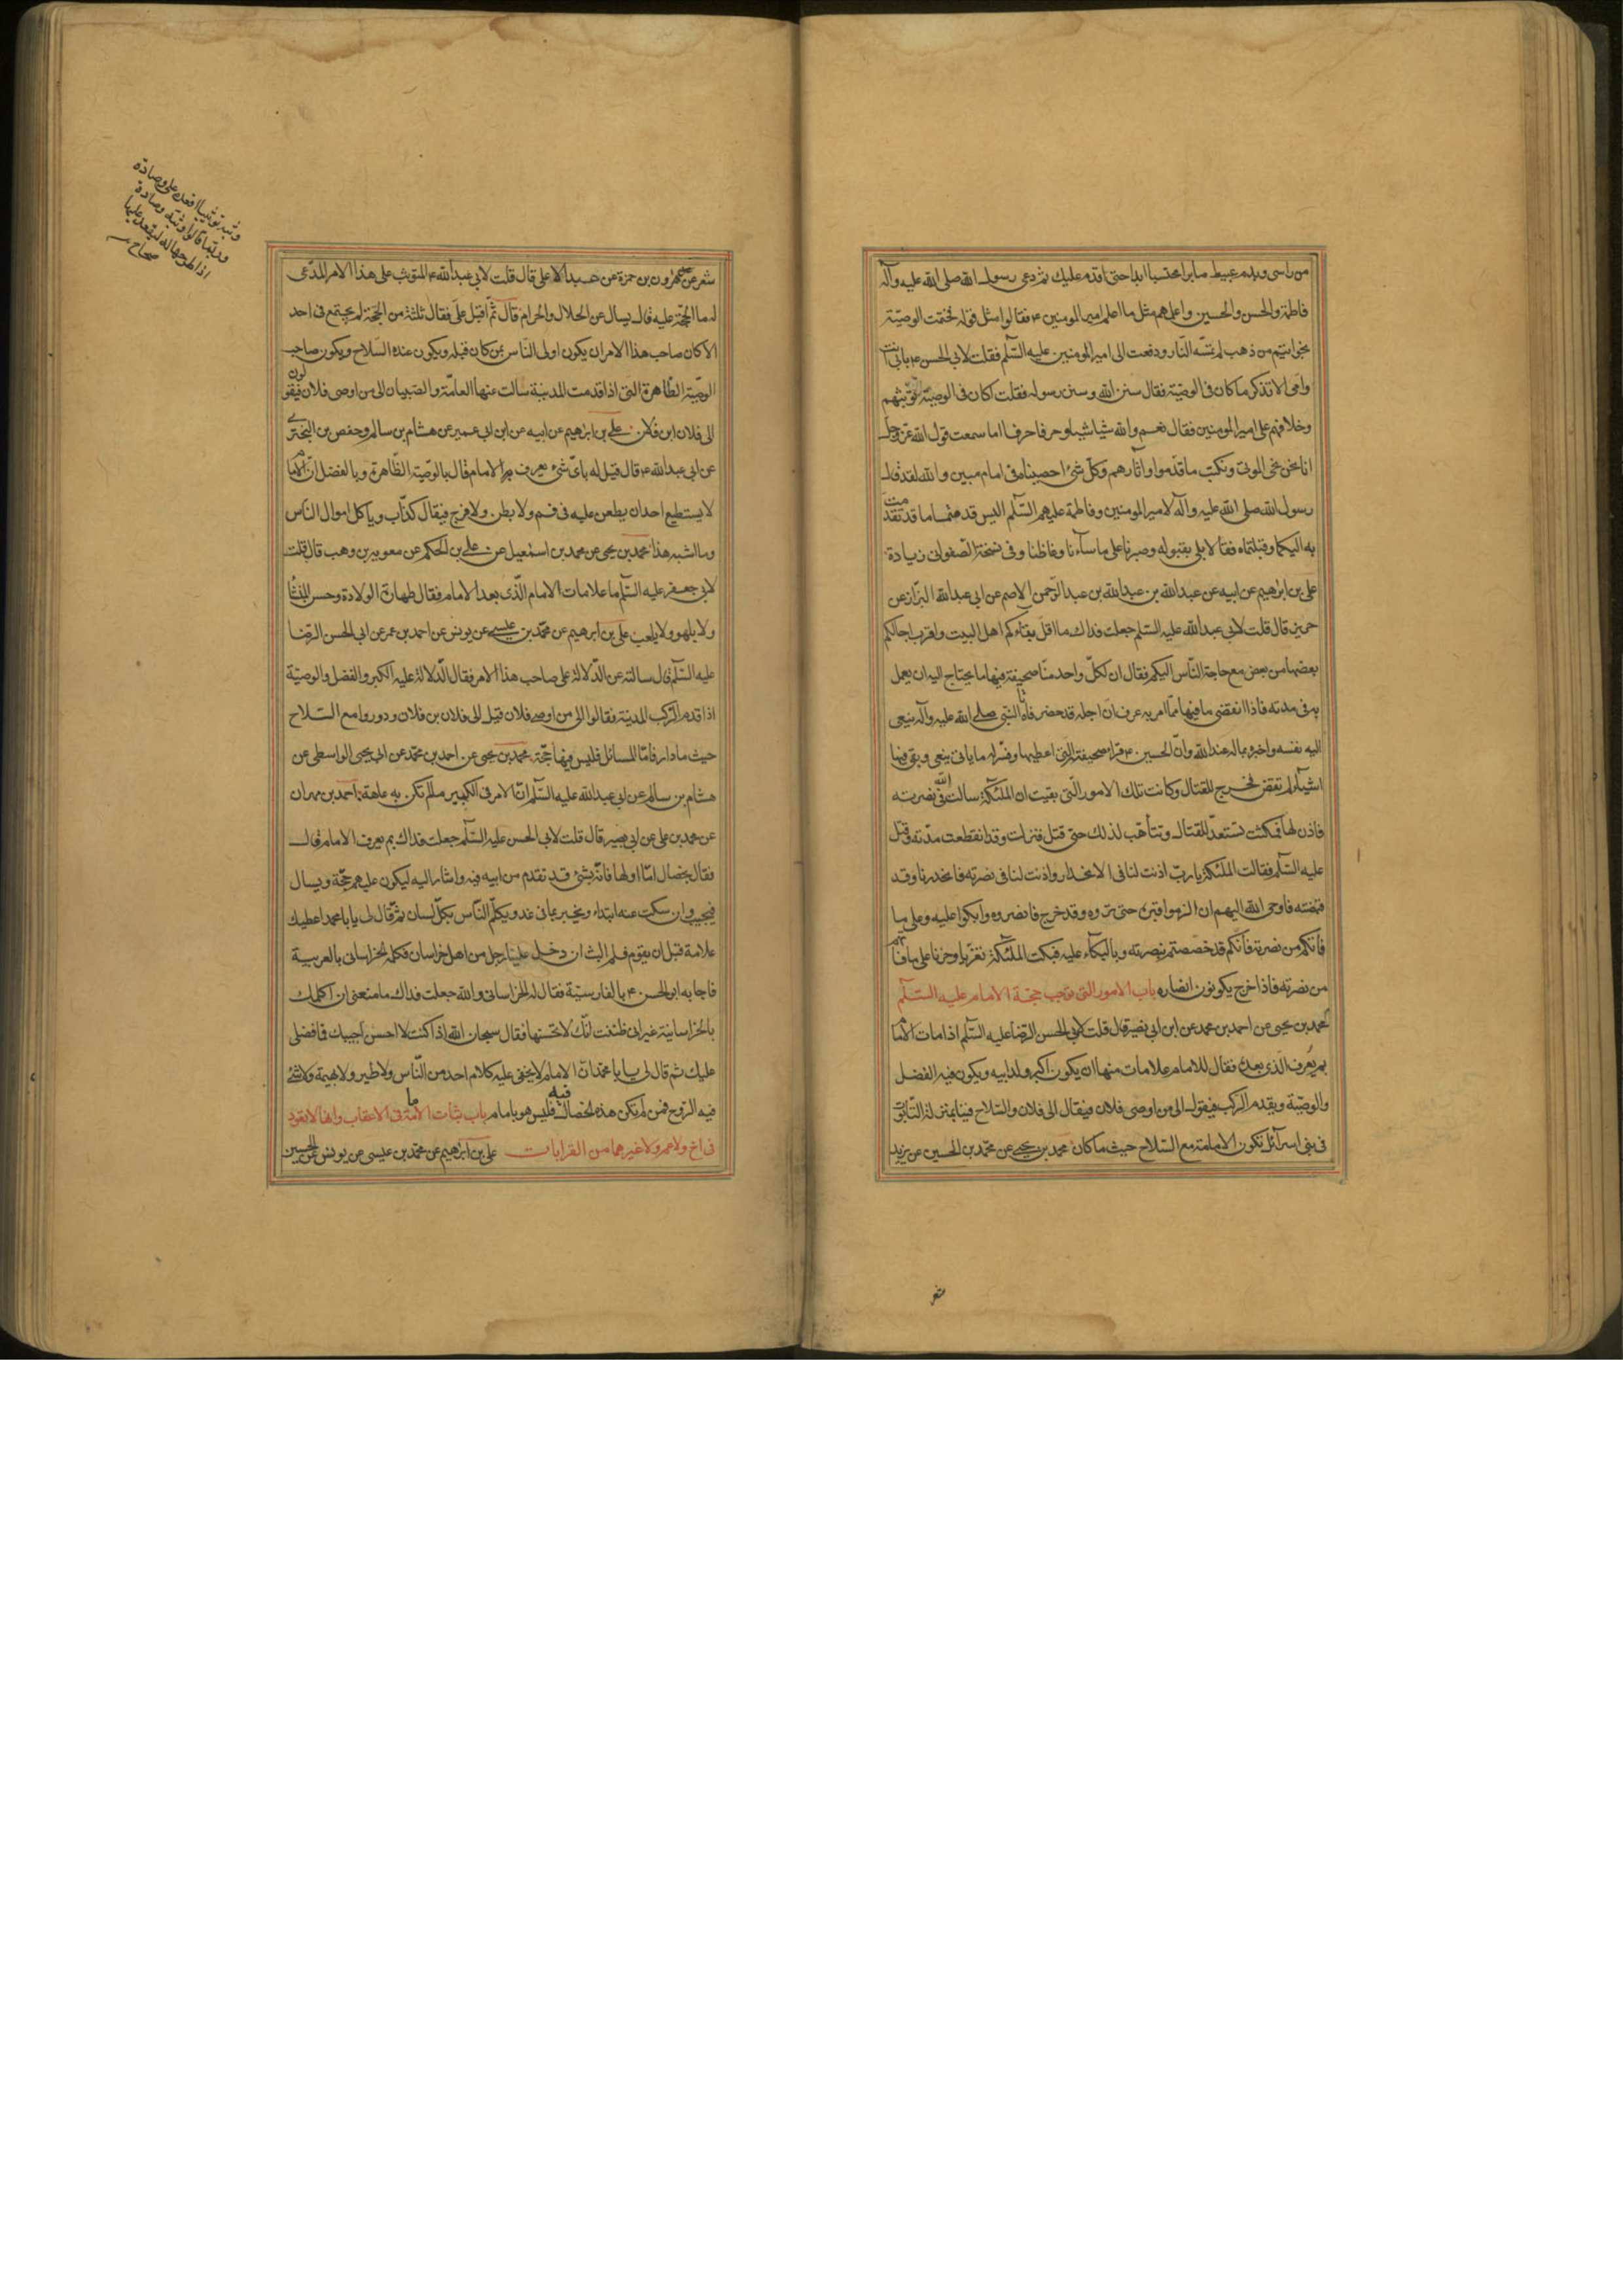 من راسى ويدمه عبيط صابرا محتسبا ابدا حتى اقدم عليك ثم دعى رسول الله صلى الله عليه وآله
فاطمة والحسن والحسين واعلمهم مثل ما اعلم امير المومنين ع فقالوا مثل قوله فختمت الوصيّة
بخواتيم من ذهب لم تمسّه النّار ودفعت الى امير المومنين عليه السّلم فقلت لابى الحسن ع بابى انت
وامى الا تذكر ما كان فى الوصيّة فقال سنن الله وسنن رسوله فقلت اكان فى الوصيّة توثّبهم
وخلافهم على امير المومنين فقال نعم والله شيا شيا وحرفا حرفا اما سمعت قول الله عزّ وجل
انا نحن نحى الموتى ونكتب ما قدّموا واثارهم وكلّ شئ احصيناه فى امام مبين والله لقد قال
رسول الله صلى الله عليه وآله لامير المومنين وفاطمة عليهم السّلم اليس قد فهمتما ما قد تقدمت
به اليكما وقبلتماه فقالا بلى بقبوله وصبرنا على ما سآءنا وغاظنا وفى نسخة الصّفوانى زيادة
على بن ابرهيم عن ابيه عن عبدالله بن عبدالله بن عبدالرّحمن الاصم عن ابى عبدالله البزّاز عن
حريز قال قلت لابى عبدالله عليه السّلم جعلت فداك ما اقلّ بقآءكم اهل البيت واقرب اجالكم
بعضها من بعض مع حاجة النّاس اليكم فقال ان لكلّ واحد منّا صحيفة فيها ما يحتاج اليه ان يعمل
به فى مدته فاذا انقضى ما فيها ممّا امر به عرف انّ اجله قد حضر فاتاه النّبى صلى الله عليه وآله ينعى
اليه نفسه واخبره بما له عند الله وانّ الحسين ع قرا صحيفته الّتى اعطيها وفسّر له ما ياتى بنعى وبقى فيها
اشيآء لم تقض فخرج للقتال وكانت تلك الامور الّتى بقيت ان الملئكة سالت الله فى نصرته
فاذن لها فمكثت تستعدّ للقتال وتتأهّب لذلك حتى قتل فنزلت وقد انقطعت مدّته وقتل
عليه السّلم فقالت الملئكة يا ربّ اذنت لنا فى الانحدار واذنت لنا فى نصرته فانحدرنا وقد
قبضته فاوحى الله اليهم ان الزموا قبره حتى تروه وقد خرج فانصروه وابكوا عليه وعلى ما
فاتكم من نصرته فانّكم قد خصصتم بنصرته وبالبكآء عليه فبكت الملئكة تعزّيا وحزنا على ما فاتهم
من نصرته فاذا خرج يكونون انصاره باب الامور الّتى توجب حجّة الامام عليه السّلم
محمد بن يحيى عن احمد بن محمد عن ابن ابى نصر قال قلت لابى الحسن الرّضا عليه السّلم اذا مات الامام
بم يعرف الّذى بعده فقال للامام علامات منها ان يكون اكبر ولد ابيه ويكون فيه الفضل
والوصيّة ويقدم الرّكب فيقول الى من اوصى فلان فيقال الى فلان والسّلاح فينا بمنزلة التّابوت
فى بنى اسرآئل تكون الامامة مع السّلاح حيث ما كان محمد بن يحيى عن محمّد بن الحسين عن يزيد
شغر
شغر عن هارون بن حمزة عن عبد الاعلى قال قلت لابى عبدالله ع المتوثّب على هذا الامر المدّعى
له ما الحجّة عليه قال يسال عن الحلال والحرام قال ثمّ اقبل علىّ فقال ثلثة من الحجّة لم يجتمع فى احد
الا كان صاحب هذا الامر ان يكون اولى النّاس بمن كان قبله ويكون عنده السّلاح ويكون صاحب
الوصيّة الظّاهرة الّتى اذا قدمت المدينة سالت عنها العامّة والصّبيان الى من اوصى فلان فيقولون
الى فلان ابن فلان على بن ابرهيم عن ابيه عن ابن ابى عمير عن هشام بن سالم وحفص بن البخترى
عن ابى عبدالله ع قال قيل له باىّ شئ يعرف الامام قال بالوصيّة الظّاهرة وبالفضل انّ الامام
لا يستطيع احد ان يطعن عليه فى فم ولا بطن ولا فرج فيقال كذّاب وياكل اموال النّاس
وما اشبه هذا محمد بن يحيى عن محمد بن اسمعيل عن على بن الحكم عن معوية بن وهب قال قلت
لابى جعفر عليه السّلم ما علامات الامام الّذى بعد الامام فقال طهارة الولادة وحسن المنشا
ولا يلهو ولا يلعب على بن ابرهيم عن محمّد بن عيسى عن يونس عن احمد بن عمر عن ابى الحسن الرّضا
عليه السّلم قال سالته عن الدّلالة على صاحب هذا الامر فقال الدّلالة عليه الكبر والفضل والوصيّة
اذا قدم الرّكب المدينة فقالوا الى من اوصى فلان قيل الى فلان بن فلان ودوروا مع السّلاح
حيث ما دار فامّا المسائل فليس فيها حجّة محمد بن يحيى عن احمد بن محمّد عن ابى يحيى الواسطى عن
هشام بن سالم عن ابى عبدالله عليه السّلم انّ الامر فى الكبير ما لم تكن به عاهة احمد بن مهران
عن محمد بن على عن ابى بصير قال قلت لابى الحسن عليه السّلم جعلت فداك بم يعرف الامام قال
فقال بخصال امّا اولها فانّه بشئ قد تقدم من ابيه فيه واشار اليه ليكون عليهم حجّة ويسال
فيجيب وان سكت عنه ابتداء ويخبر بما فى غد ويكلّم النّاس بكلّ لسان ثمّ قال لى يا با محمد اعطيك
علامة قبل ان يقوم فلم البث ان دخل علينا رجل من اهل خراسان فكلمه الخراسانى بالعربية
فاجابه ابو الحسن ع بالفارسيّة فقال له الخراسانى والله جعلت فداك ما منعنى ان اكلمك
بالخراسانية غير انى ظننت انّك لا تحسنها فقال سبحان الله اذا كنت لا احسن اجيبك فما فضلى
عليك ثم قال لى يا با محمّد انّ الامام لا يخفى عليه كلام احد من النّاس ولا طير ولا بهيمة ولا شئ
فيه الرّوح فمن لم تكن هذه الخصال فيه فليس هو بامام باب ثبات الامامة فى الاعقاب وانها لا تعود
فى اخ ولا عم ولا غيرهما من القرابات على بن ابرهيم عن محمّد بن عيسى عن يونس عن الحسين
وثبه توثيبا اقعده على وسادة
وربّما قالوا وثبه وسادة
اذا طرحها له ليقعد عليها
صحاح